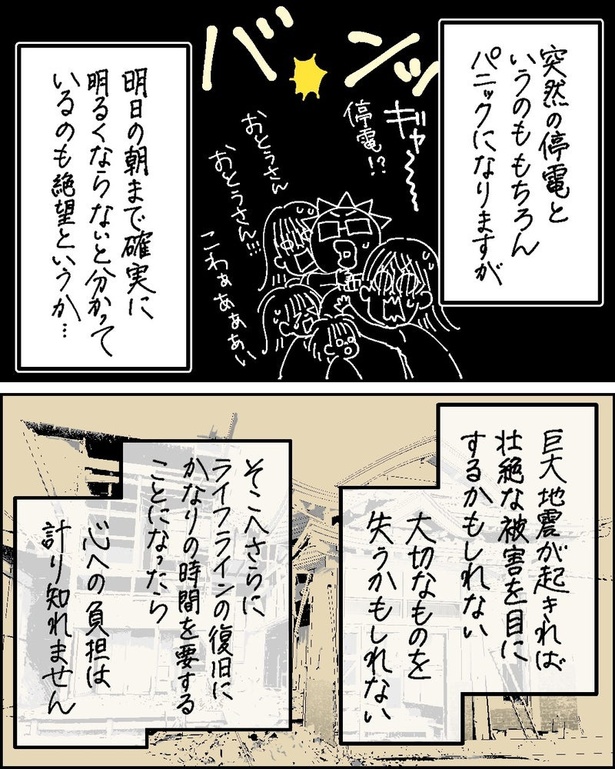 突然の停電と
いうのももちろん
パニックになりますが
バンッ
ギャ〜〜〜
停電!?
おとうさん
おとうさん!!!
こわぁぁぁぁい
明日の朝まで確実に
明るくならないと分かって
いるのも絶望というか…
巨大地震が起きれば
壮絶な被害を目に
するかもしれない
大切なものを
失うかもしれない
そこへさらに
ライフラインの復旧に
かなりの時間を要する
ことになったら
心への負担は
計り知れません